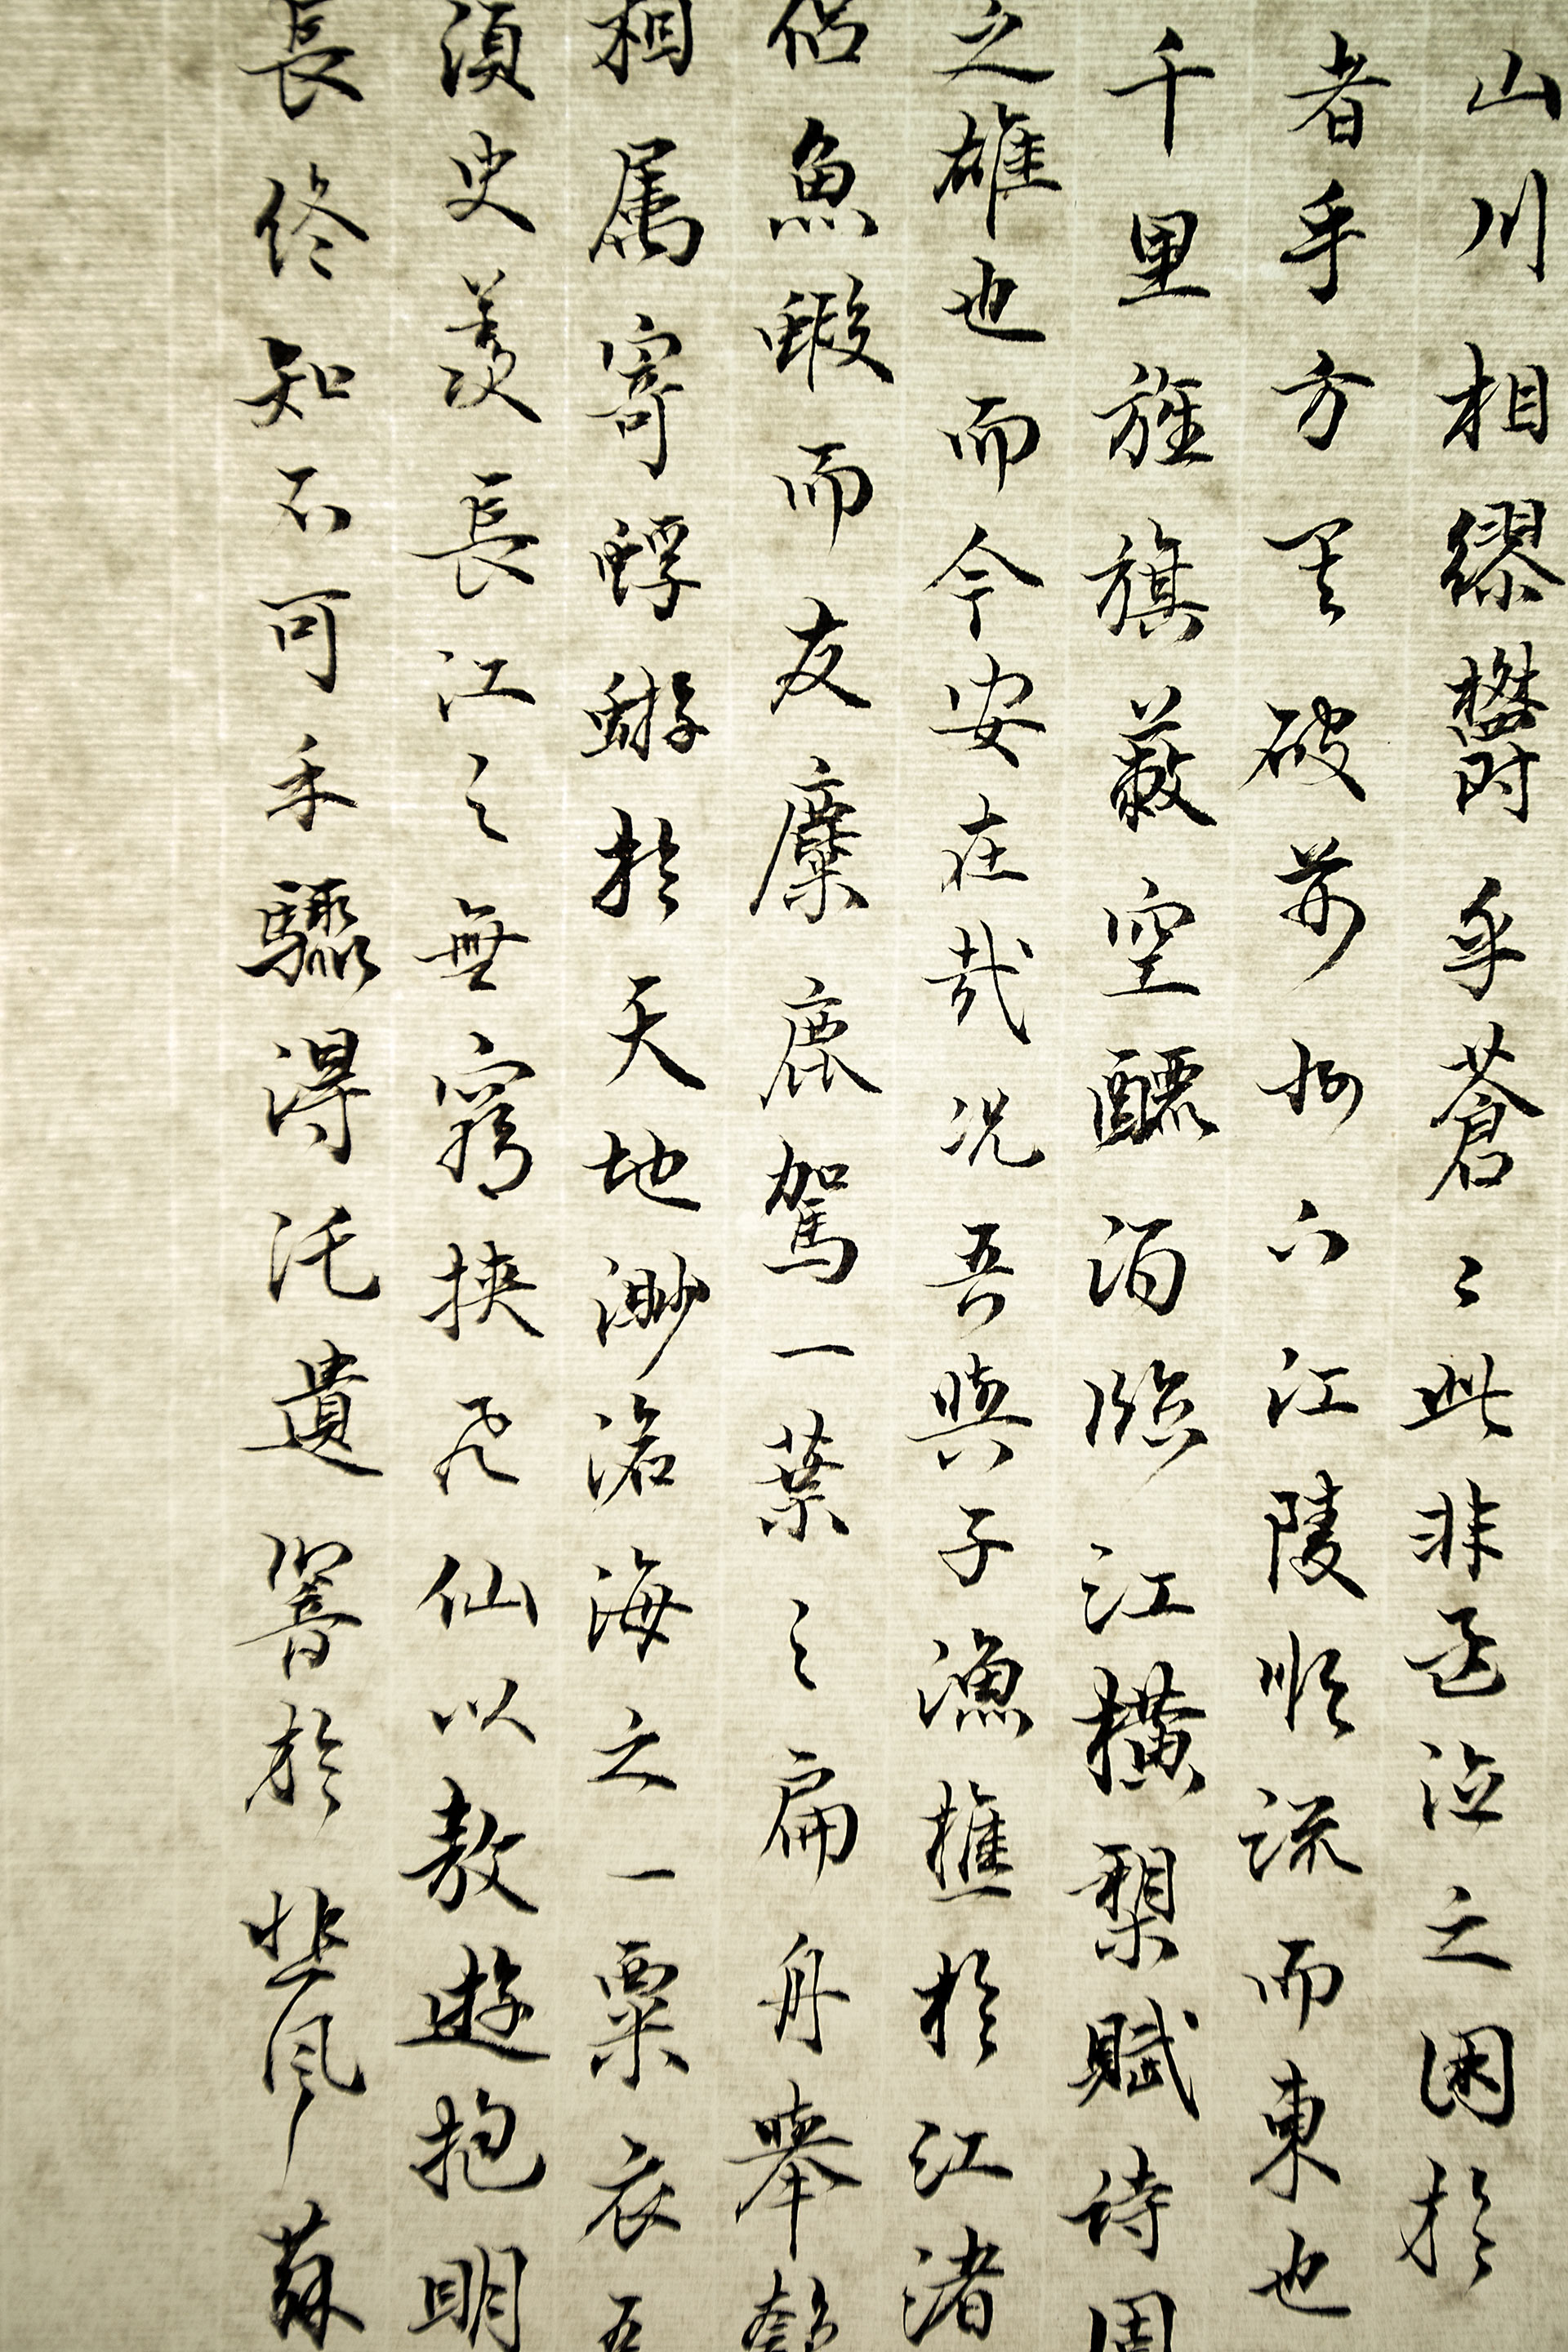 山川相繆鬱乎蒼〻此非孟德之困於
者乎方其破荊州下江陵順流而東也
千里旌旗蔽空釃酒臨江橫槊賦詩固
之雄也而今安在哉況吾與子漁樵於江渚
侶魚蝦而友麋鹿駕一葉之扁舟舉匏
相属寄蜉蝣於天地渺滄海之一粟哀吾
須臾羨長江之無窮挾飛仙以敖遊抱明
長終知不可乎驟得託遺響於悲風蘇